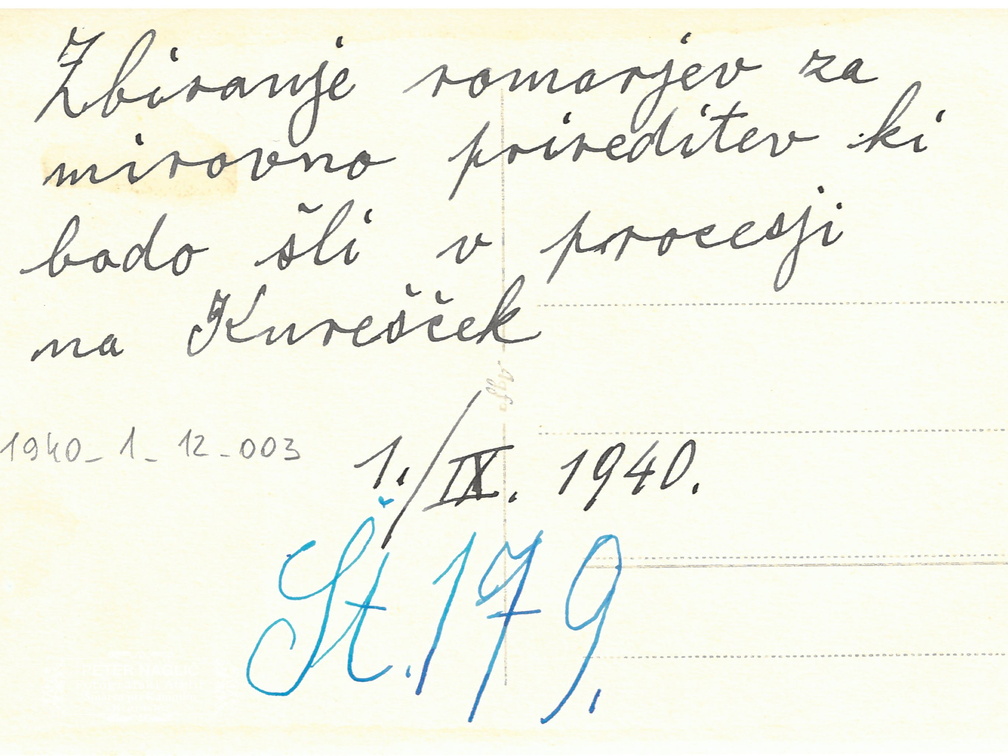 Zbiranje romarjev za
mirovno prireditev ki
bodo šli v procesji
na Kurešček
1940_1_12_003
1./IX. 1940.
Št. 179.